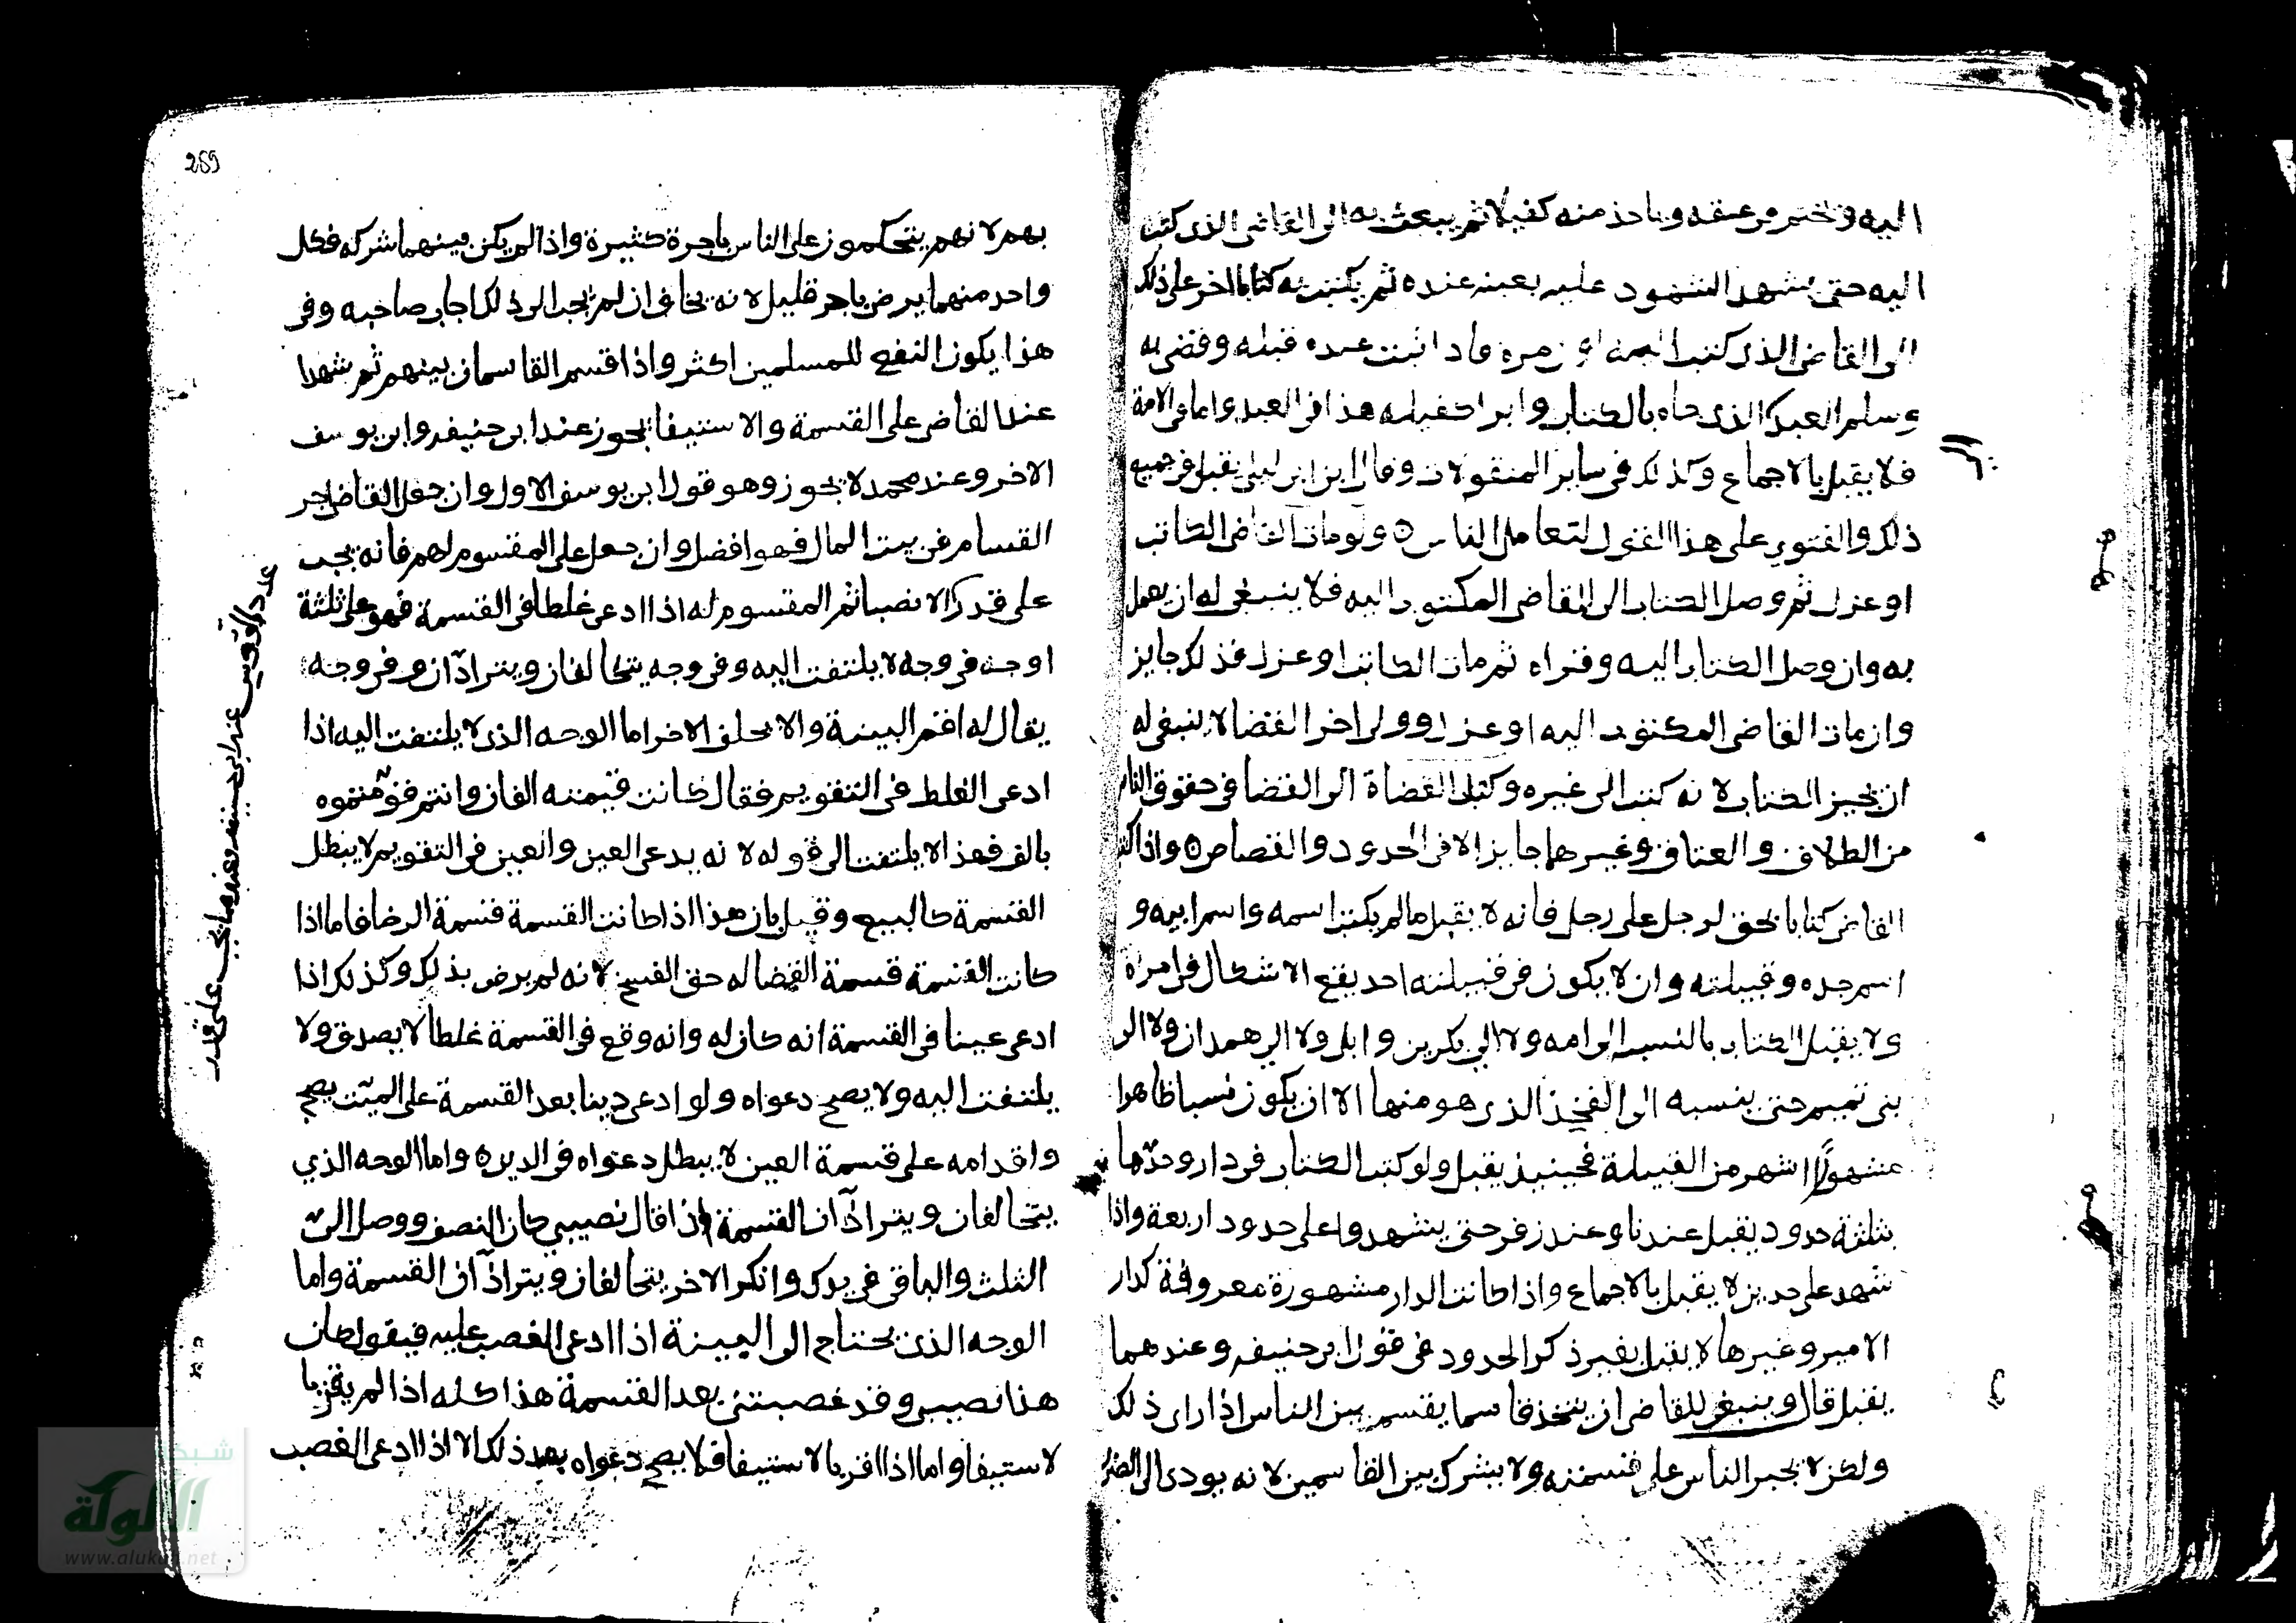 اليه ويختم في عنقه وياخذ منه كفيلا ثم يبعث به الى القاضي الذي كتب
اليه حتى يشهد الشهود عليه بعينه عنده ثم يكتب به كتابا اخر على ذلك
الى القاضي الذي كتب اليه اول مرة فاذا ثبت عنده قبله وقضى به
وسلم العبد الى الذي جاه بالكتاب وابرا كفيله هذا في العبد واما في الامة
فلا يقبل بالاجماع وكذلك في ساير المنقولات وقال ابن ابي ليلى يقبل في جميع
ذلك والفتوى على هذا القول لتعامل الناس ه ولو مات القاضي الكاتب
او عزل ثم وصل الكتاب الى القاضي المكتوب اليه فلا ينبغي له ان يعمل
به وان وصل الكتاب اليه وقراه ثم مات الكاتب او عزل فذلك جايز
وان مات القاضي المكتوب اليه او عزل وولي اخر القضا لا ينبغي له
ان يجيز الكتاب لانه كتب الى غيره وكتب القضاة الى القضا في حقوق الناس
من الطلاق والعتاق وغيرها جايز الا في الحدود والقصاص ه واذا كتب
القاضي كتابا بحق لرجل على رجل فانه لا يقبل ما لم يكتب اسمه واسم ابيه و
اسم جده وقبيلته وان لا يكون في قبيلته احد يقع الاشكال في امراه
ولا يقبل الكتاب بالنسبة الى امه ولا الى بكر بن وايل ولا الى همدان ولا الى
بني تميم حتى ينسبه الى الفخذ الذي هو منها الا ان يكون نسبا ظاهرا
مشهورا اشهر من القبيلة فحينيذ يقبل ولو كتب الكتاب في دار وحدها
بثلثة حدود يقبل عندنا وعند زفر حتى يشهدوا على حدود اربعة واذا
شهد على حدين لا يقبل بالاجماع واذا كانت الدار مشهورة معروفة كدار
الامير وغيرها لا يقبل بغير ذكر الحدود في قول ابي حنيفه وعندهما
يقبل قال وينبغي للقاضي ان يتخذ قاسما يقسم بين الناس اذا راى ذلك
ولكن لا يجبر الناس على قسمته ولا يشرك بين القاسمين لانه يودي الى الضرر
289
بهم لانهم يتحكمون على الناس باجرة كثيرة واذا لم يكن بينهما شركه فكل
واحد منهما يرضى باجر قليل لانه يخاف ان لم يجب الى ذلك اجاب صاحبه وفي
هذا يكون النفع للمسلمين اكثر واذا قسم القاسمان بينهم ثم شهدا
عند القاضي على القسمة والاستيفا يجوز عند ابي حنيفه وابي يوسف
الاخر وعند محمد لا يجوز وهو قول ابي يوسف الاول وان جعل القاضي اجر
القسام من بيت المال فهو افضل وان جعل على المقسوم لهم فانه يجب
على قدر الانصبا ثم المقسوم له اذا ادعى غلطا في القسمة فهو على ثلثة
اوجه في وجه لا يلتفت اليه وفي وجه يتحالفان ويترادان وفي وجه
يقال له اقم البينة والا يحلف الاخر اما الوجه الذي لا يلتفت اليه اذا
ادعى الغلط في التقويم فقال كانت قيمته الفان وانتم قومتموه
بالف فهذا لا يلتفت الى قوله لانه يدعي الغبن والغبن في التقويم لا يبطل
القسمة كالبيع وقيل بان هذا اذا كانت القسمة قسمة الرضا فاما اذا
كانت القسمة قسمة القضا له حق الفسخ لانه لم يرض بذلك وكذلك اذا
ادعى عينا في القسمة انه كان له وانه وقع في القسمة غلطا لا يصدق ولا
يلتفت اليه ولا يصح دعواه ولو ادعى دينا بعد القسمة على الميت يصح
واقدامه على قسمة العين لا يبطل دعواه في الدين ه واما الوجه الذي
يتحالفان ويترادان القسمة اذا قال نصيبي كان النصف ووصل الي
الثلث والباقي في يدك وانكر الاخر يتحالفان ويترادان القسمة واما
الوجه الذي يحتاج الى البينة اذا ادعى الغصب عليه فيقول كان
هذا نصيبي وقد غصبتني بعد القسمة هذا كله اذا لم يقر با
لاستيفا واما اذا اقر بالاستيفا فلا يصح دعواه بعد ذلك الا اذا ادعى الغصب
عدد الروس عند ابي حنيفه وعند صاحبيه على قدر
شبكة
الألوكة
www.alukah.net